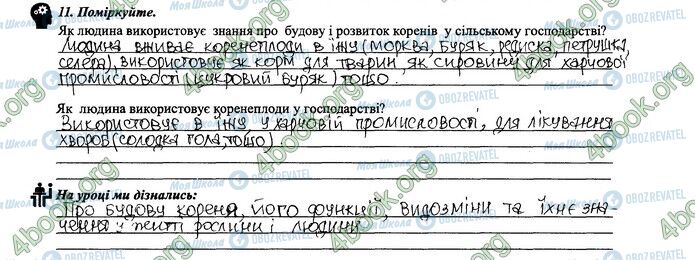 11. Поміркуйте.
Як людина використовує знання про будову і розвиток коренів у сільському господарстві?
Людина вживає коренеплоди в їжу (морква, буряк, редиска, петрушка,
селера), використовує як корм для тварин, як сировину для харчової
промисловості (цукровий буряк) тощо.
Як людина використовує коренеплоди у господарстві?
Використовує в їжу у харчовій промисловості, для лікування
хвороб (солодка гола, тощо)
На уроці ми дізнались:
Про будову кореня, його функції, видозміни та їхнє зна-
чення у житті рослини і людини
4book.org
Моя Школа
OBOZREVATEL